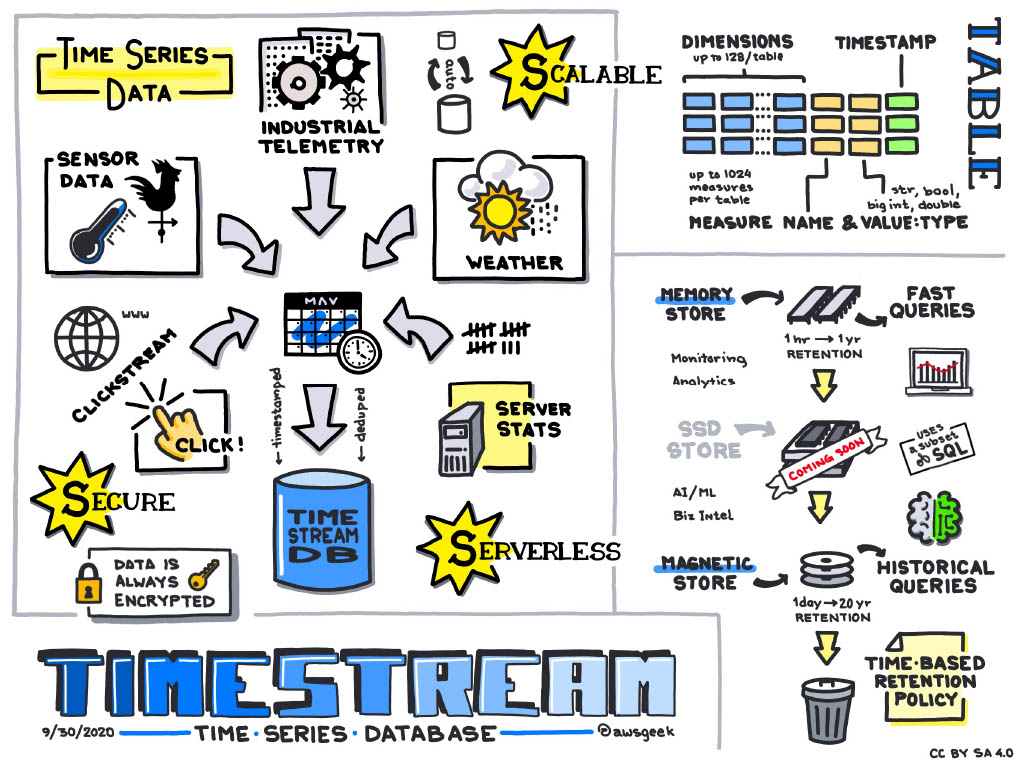 TIME SERIES
DATA
INDUSTRIAL
TELEMETRY
auto
SCALABLE
SENSOR
DATA
WEATHER
WWW
CLICKSTREAM
CLICK!
MAY
timestamped
deduped
SERVER
STATS
SECURE
DATA IS
ALWAYS
ENCRYPTED
TIME
STREAM
DB
SERVERLESS
TABLE
DIMENSIONS
up to 128/table
TIMESTAMP
up to 1024
measures
per table
str, bool,
big int, double
MEASURE NAME & VALUE:TYPE
MEMORY
STORE
FAST
QUERIES
1 hr → 1 yr
RETENTION
Monitoring
Analytics
SSD
STORE
COMING SOON
USES
a subset
of SQL
AI/ML
Biz Intel
MAGNETIC
STORE
HISTORICAL
QUERIES
1day → 20 yr
RETENTION
TIME-BASED
RETENTION
POLICY
TIMESTREAM
9/30/2020
TIME·SERIES·DATABASE
@awsgeek
CC BY SA 4.0